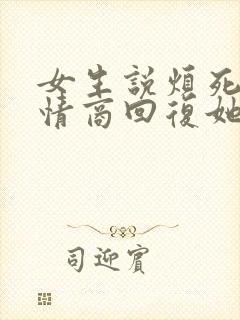 女生說煩死
情商回復她
司迎賓